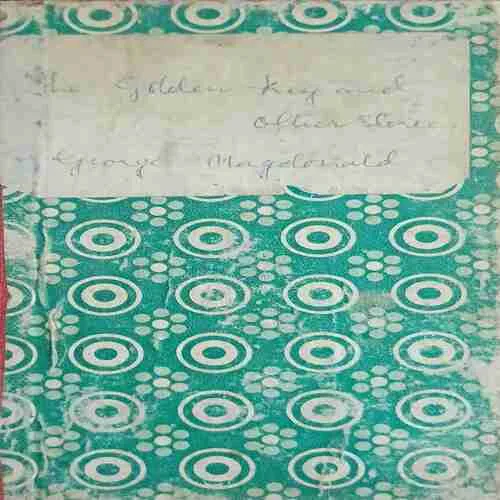 The Golden Key and
Other Stories
George Magdonald